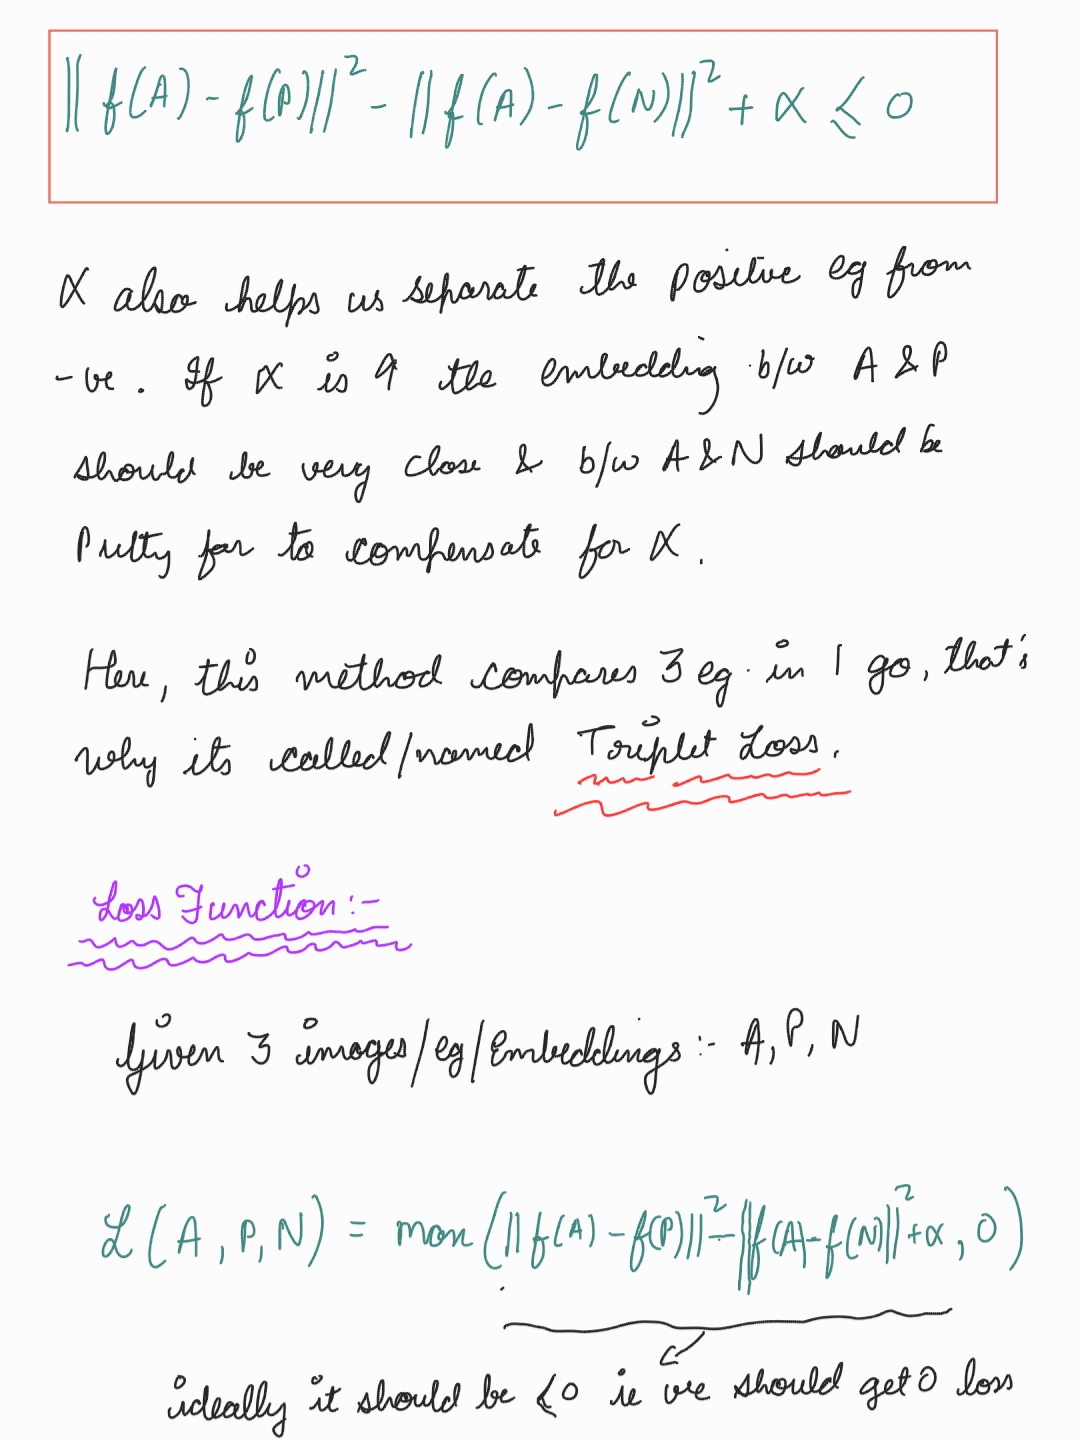 || f(A) - f(P) ||² - || f(A) - f(N) ||² + α ≤ 0
α also helps us separate the positive eg from
-ve. If α is ↑ the embedding b/w A & P
should be very close & b/w A & N should be
Pretty far to compensate for α.
Here, this method compares 3 eg. in 1 go, that's
why its called/named Triplet Loss.
Loss Function :-
Given 3 images/eg/Embeddings :- A, P, N
L(A, P, N) = max(|| f(A) - f(P) ||² - || f(A) - f(N) ||² + α, 0)
ideally it should be ≤ 0 ie we should get 0 loss